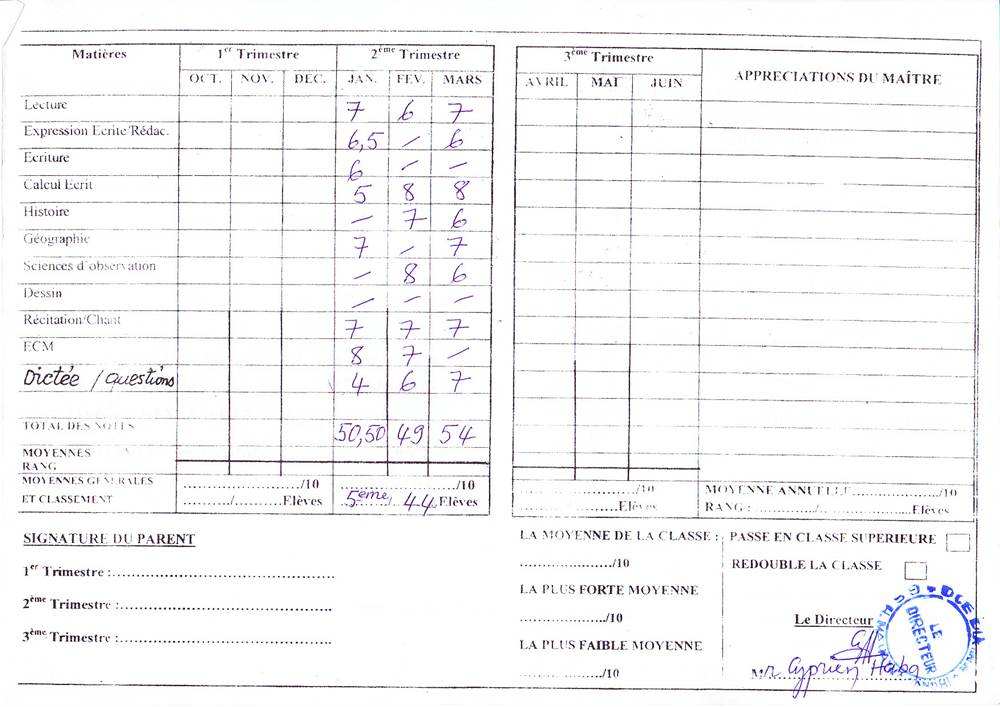 Matières 1er Trimestre 2ème Trimestre
OCT. NOV. DEC. JAN. FEV. MARS
Lecture 7 6 7
Expression Ecrite/Rédac. 6,5 – 6
Ecriture 6 – –
Calcul Ecrit 5 8 8
Histoire – 7 6
Géographie 7 – 7
Sciences d'observation – 8 6
Dessin – – –
Récitation/Chant 7 7 7
ECM 8 7 –
Dictée / questions 4 6 7
TOTAL DES NOTES 50,50 49 54
MOYENNES
RANG
MOYENNES GENERALES ........................../10 ........................../10
ET CLASSEMENT ........../..........Elèves 5ème/ 44 Elèves
3ème Trimestre APPRECIATIONS DU MAÎTRE
AVRIL MAI JUIN
........................../10 MOYENNE ANNUELLE ................../10
......................Elèves RANG : ............/......................Elèves
SIGNATURE DU PARENT
1er Trimestre :..................................................
2ème Trimestre :..................................................
3ème Trimestre :..................................................
LA MOYENNE DE LA CLASSE :
...................../10
LA PLUS FORTE MOYENNE
...................../10
LA PLUS FAIBLE MOYENNE
...................../10
PASSE EN CLASSE SUPERIEURE
REDOUBLE LA CLASSE
Le Directeur
LE DIRECTEUR
Mr Cyprien Haba